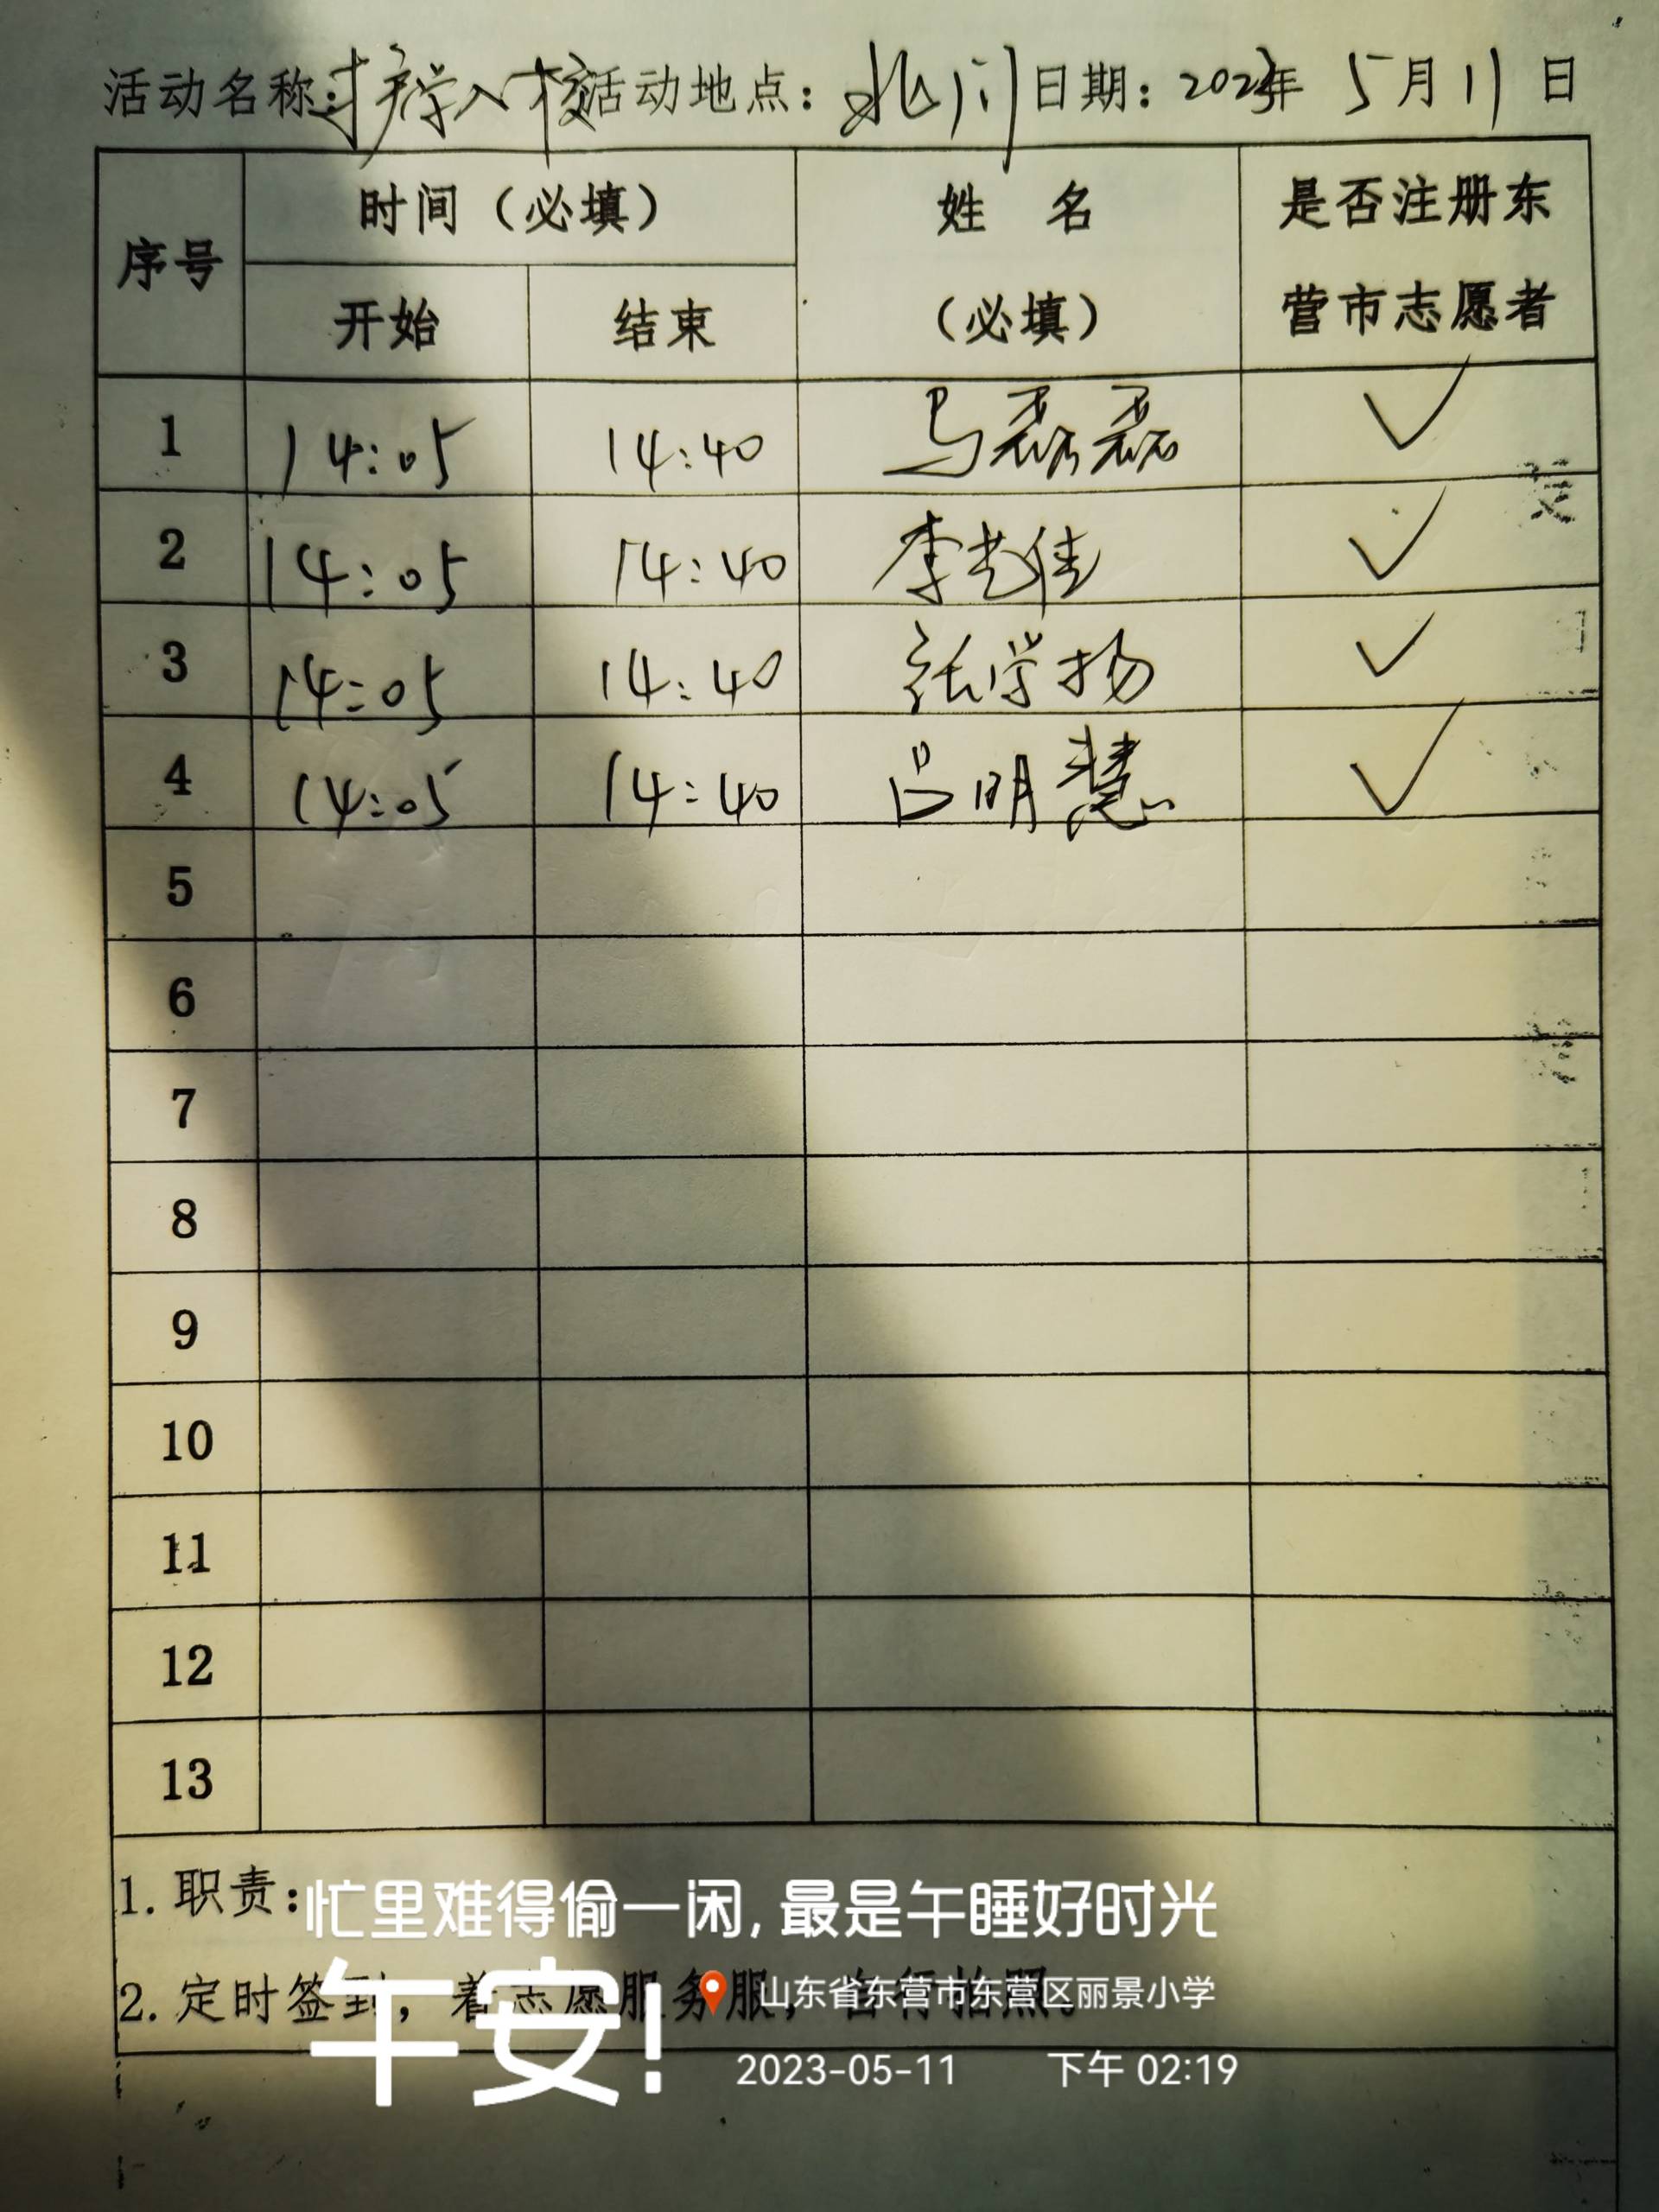 活动名称:护学入校活动地点：北门日期：2023年 5月11日
序号 时间（必填） 姓 名（必填） 是否注册东营市志愿者
开始 结束
1 14:05 14:40 马磊磊 ✓
2 14:05 14:40 李艺佳 ✓
3 14:05 14:40 张学扬 ✓
4 14:05 14:40 吕明慧 ✓
5
6
7
8
9
10
11
12
13
1. 职责：
忙里难得偷一闲，最是午睡好时光
2. 定时签到，着志愿服务服，自行拍照。
午安！
山东省东营市东营区丽景小学
2023-05-11 下午 02:19